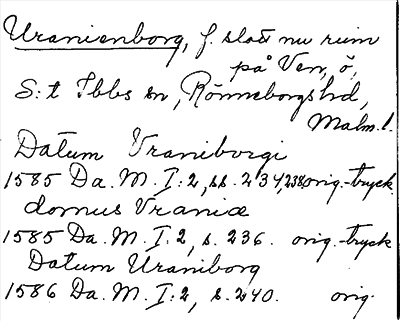 Uranienborg, f. slott nu ruin
på Ven, ö,
S:t Ibbs sn, Rönnebergshd,
Malm.l.
Datum Vraniborgi
1585 Da. M. I:2, ss. 234,238 orig.-tryck
domus Vraniæ
1585 Da. M. I:2, s. 236. orig.-tryck
Datum Uraniborg
1586 Da. M. I:2, s. 240. orig.